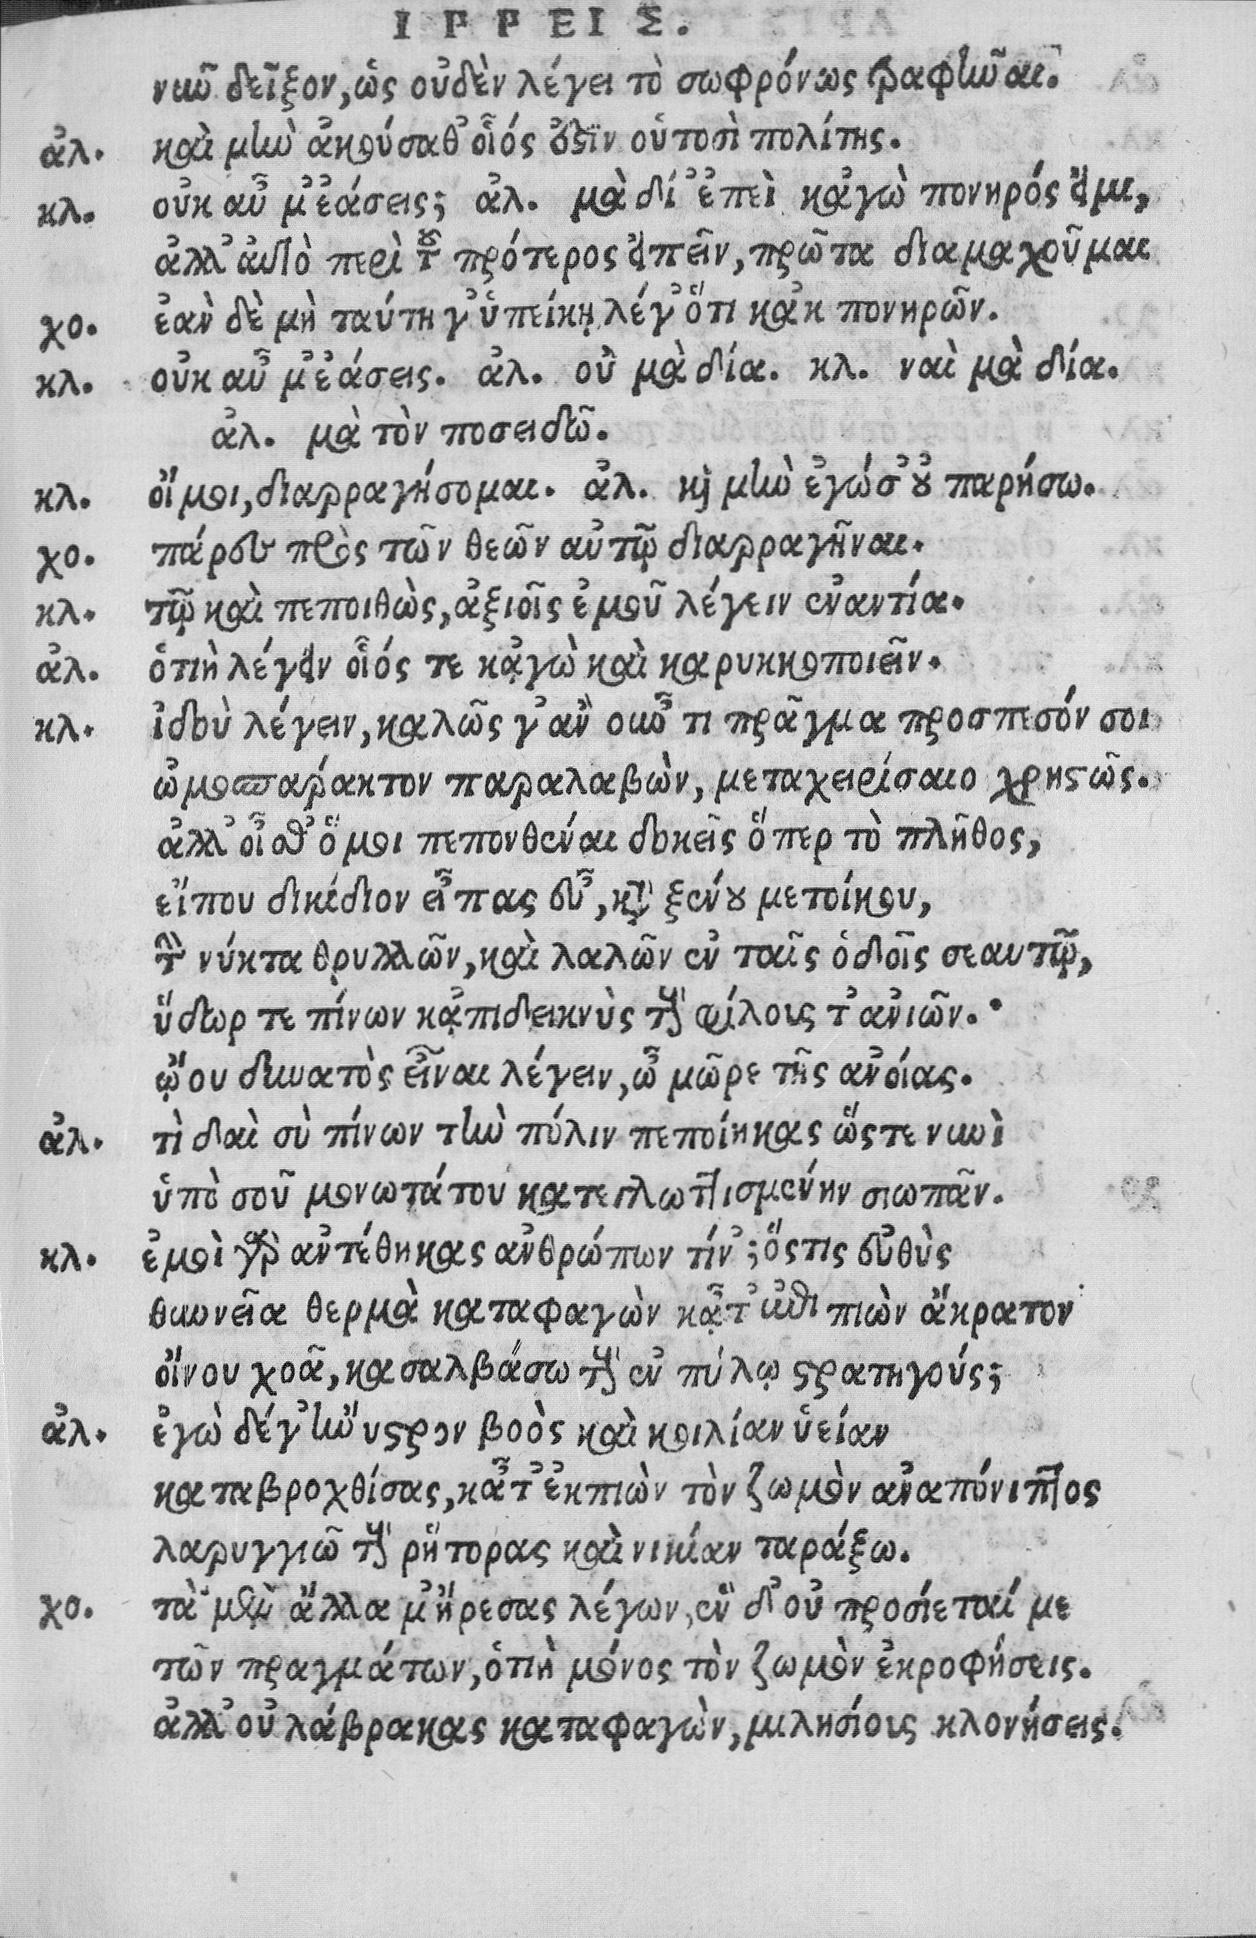 ΙΡΡΕΙΣ.
νῦν δεῖξον, ὡς οὐδὲν λέγει τὸ σωφρόνως τραφῆναι.
ἀλ. καὶ μὴν ἀκούσαθ᾽ οἷός ὅστὶν οὑτοσὶ πολίτης.
κλ. οὐκ αὖ μ᾽ ἐάσεις; ἀλ. μὰ δί᾽ ἐπεὶ κἀγὼ πονηρός εἰμι,
ἀλλ᾽ αὐτὸ περὶ τοῦ πρότερος εἰπεῖν, πρῶτα διαμαχοῦμαι
χο. ἐὰν δὲ μὴ ταύτη γ᾽ ὑπείκῃ λέγ᾽ ὅτι κἀκ πονηρῶν.
κλ. οὐκ αὖ μ᾽ ἐάσεις. ἀλ. οὐ μὰ δία. κλ. ναὶ μὰ δία.
ἀλ. μὰ τὸν ποσειδῶ.
κλ. οἴμοι, διαρραγήσομαι. ἀλ. καὶ μὴν ἐγώ σ᾽ οὐ παρήσω.
χο. πάρες πρὸς τῶν θεῶν αὐτῷ διαρραγῆναι.
κλ. τῷ καὶ πεποιθὼς, ἀξιοῖς ἐμοῦ λέγειν ἐναντία.
ἀλ. ὁτιὴ λέγειν οἷός τε κἀγὼ καὶ καρυκκοποιεῖν.
κλ. ἰδοὺ λέγειν, καλῶς γ᾽ ἂν οὖν τι πρᾶγμα προσπεσόν σοι
ὠμοσπάρακτον παραλαβὼν, μεταχειρίσαιο χρηστῶς.
ἀλλ᾽ οἶσθ᾽ ὅ μοι πεπονθέναι δοκεῖς ὅπερ τὸ πλῆθος,
εἴπου δικίδιον εἶπας εὖ, κατὰ ξένου μετοίκου,
τὴν νύκτα θρυλλῶν, καὶ λαλῶν ἐν ταῖς ὁδοῖς σεαυτῷ,
ὕδωρ τε πίνων κἀπιδεικνὺς τοὺς φίλους τ᾽ ἀνιῶν.
ᾤου δυνατὸς εἶναι λέγειν, ὦ μῶρε τῆς ἀνοίας.
ἀλ. τὶ δαὶ σὺ πίνων τὴν πόλιν πεποίηκας ὥστε νυνὶ
ὑπὸ σοῦ μονωτάτου κατεγλωττισμένην σιωπᾶν.
κλ. ἐμοὶ γὰρ ἀντέθηκας ἀνθρώπων τίν᾽; ὅστις εὐθὺς
θύννεῖα θερμὰ καταφαγὼν κᾆτ᾽ ἐπιπιὼν ἄκρατον
οἴνου χοᾶ, κασαλβάσω τοὺς ἐν πύλῳ στρατηγούς;
ἀλ. ἐγὼ δέ γ᾽ ἤνυστρον βοὸς καὶ κοιλίαν ὑείαν
καταβροχθίσας, κᾆτ᾽ ἐκπιὼν τὸν ζωμὸν ἀναπόνιπτος
λαρυγγιῶ τοὺς ῥήτορας καὶ νικίαν ταράξω.
χο. τὰ μὲν ἄλλα μ᾽ ἤρεσας λέγων, ἓν δ᾽ οὐ προσίεταί με
τῶν πραγμάτων, ὁτιὴ μόνος τὸν ζωμὸν ἐκροφήσεις.
ἀλλ᾽ οὐ λάβρακας καταφαγὼν, μιλησίους κλονήσεις.